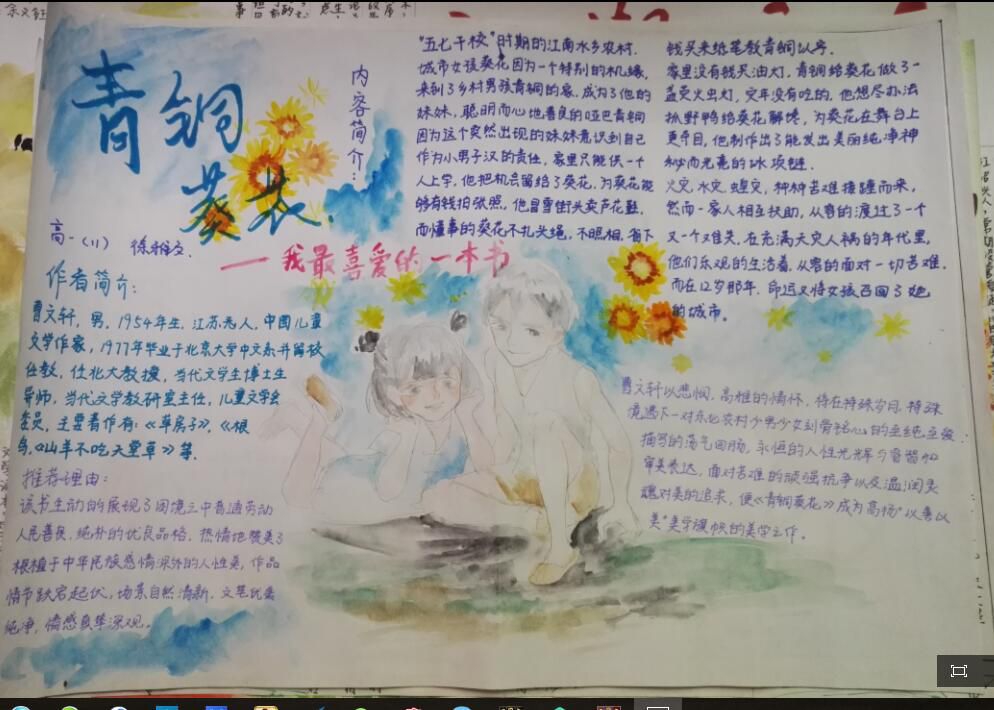 青铜
葵花
高一（11）
——我最喜爱的一本书
作者简介：
曹文轩，男，1954年生，江苏人，中国儿童
文学作家，1977年毕业于北京大学中文系并留校
任教，任北大教授，当代文学生博士生
导师，当代文学教研室主任，儿童文学会
委员，主要著作有：《草房子》，《根
鸟，《山羊不吃天堂草》等．
推荐理由：
该书生动的展现了困境之中普通劳动
人民善良，纯朴的优良品格，热情地赞美了
根植于中华民族感情深处的人性美，作品
情节跌宕起伏，场景自然清新，文笔优美
纯净，情感真挚深观。
内容简介：
“五七干校”时期的江南水乡农村．
城市女孩葵花因为一个特别的机缘，
来到了乡村男孩青铜的家，成为了他的
妹妹，聪明而心地善良的哑巴青铜
因为这个突然出现的妹妹意识到自己
作为小男子汉的责任，家里只能供一个
人上学，他把机会留给了葵花，为葵花能
够有钱拍张照，他冒雪街头卖芦花鞋，
而懂事的葵花不扎头绳，不照相，省下
钱买来纸笔教青铜认字．
家里没有钱买油灯，青铜给葵花做了一
盏萤火虫灯，灾年没有吃的，他想尽办法
抓野鸭给葵花解馋，为葵花在舞台上
更夺目，他制作出了能发出美丽纯净神
秘而光亮的冰项链．
火灾，水灾，蝗灾，种种苦难接踵而来，
然而一家人相互扶助，从容的渡过了一个
又一个难关，在充满天灾人祸的年代里，
他们乐观的生活着，从容的面对一切苦难．
而在12岁那年，命运又将女孩召回了她
的城市。
曹文轩以悲悯，高雅的情怀，将在特殊岁月，特殊
境遇下一对乐化农村少男少女刻骨铭心的至纯至爱
描写的荡气回肠，永恒的人性光辉与睿智和
审美表达，面对苦难的顽强抗争以及温润灵
魂对美的追求，使《青铜葵花》成为高扬“以善以
美”美学旗帜的美学之作．